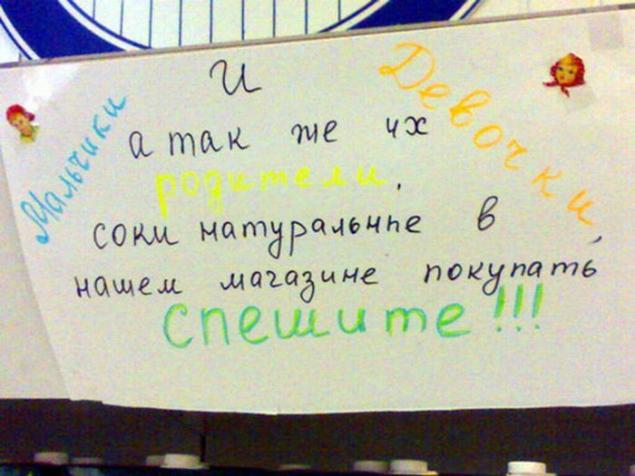 Мальчики
и
Девочки,
а так же их
родители,
соки натуральные в
нашем магазине покупать
спешите!!!